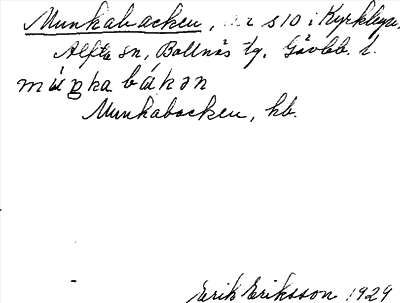 Munkabacken, s10 i Kyrkbyn.
Alfta sn, Bollnäs tg, Gävleb. l.
múŋka bákən
Munkabacken, kb.
Erik Eriksson 1929